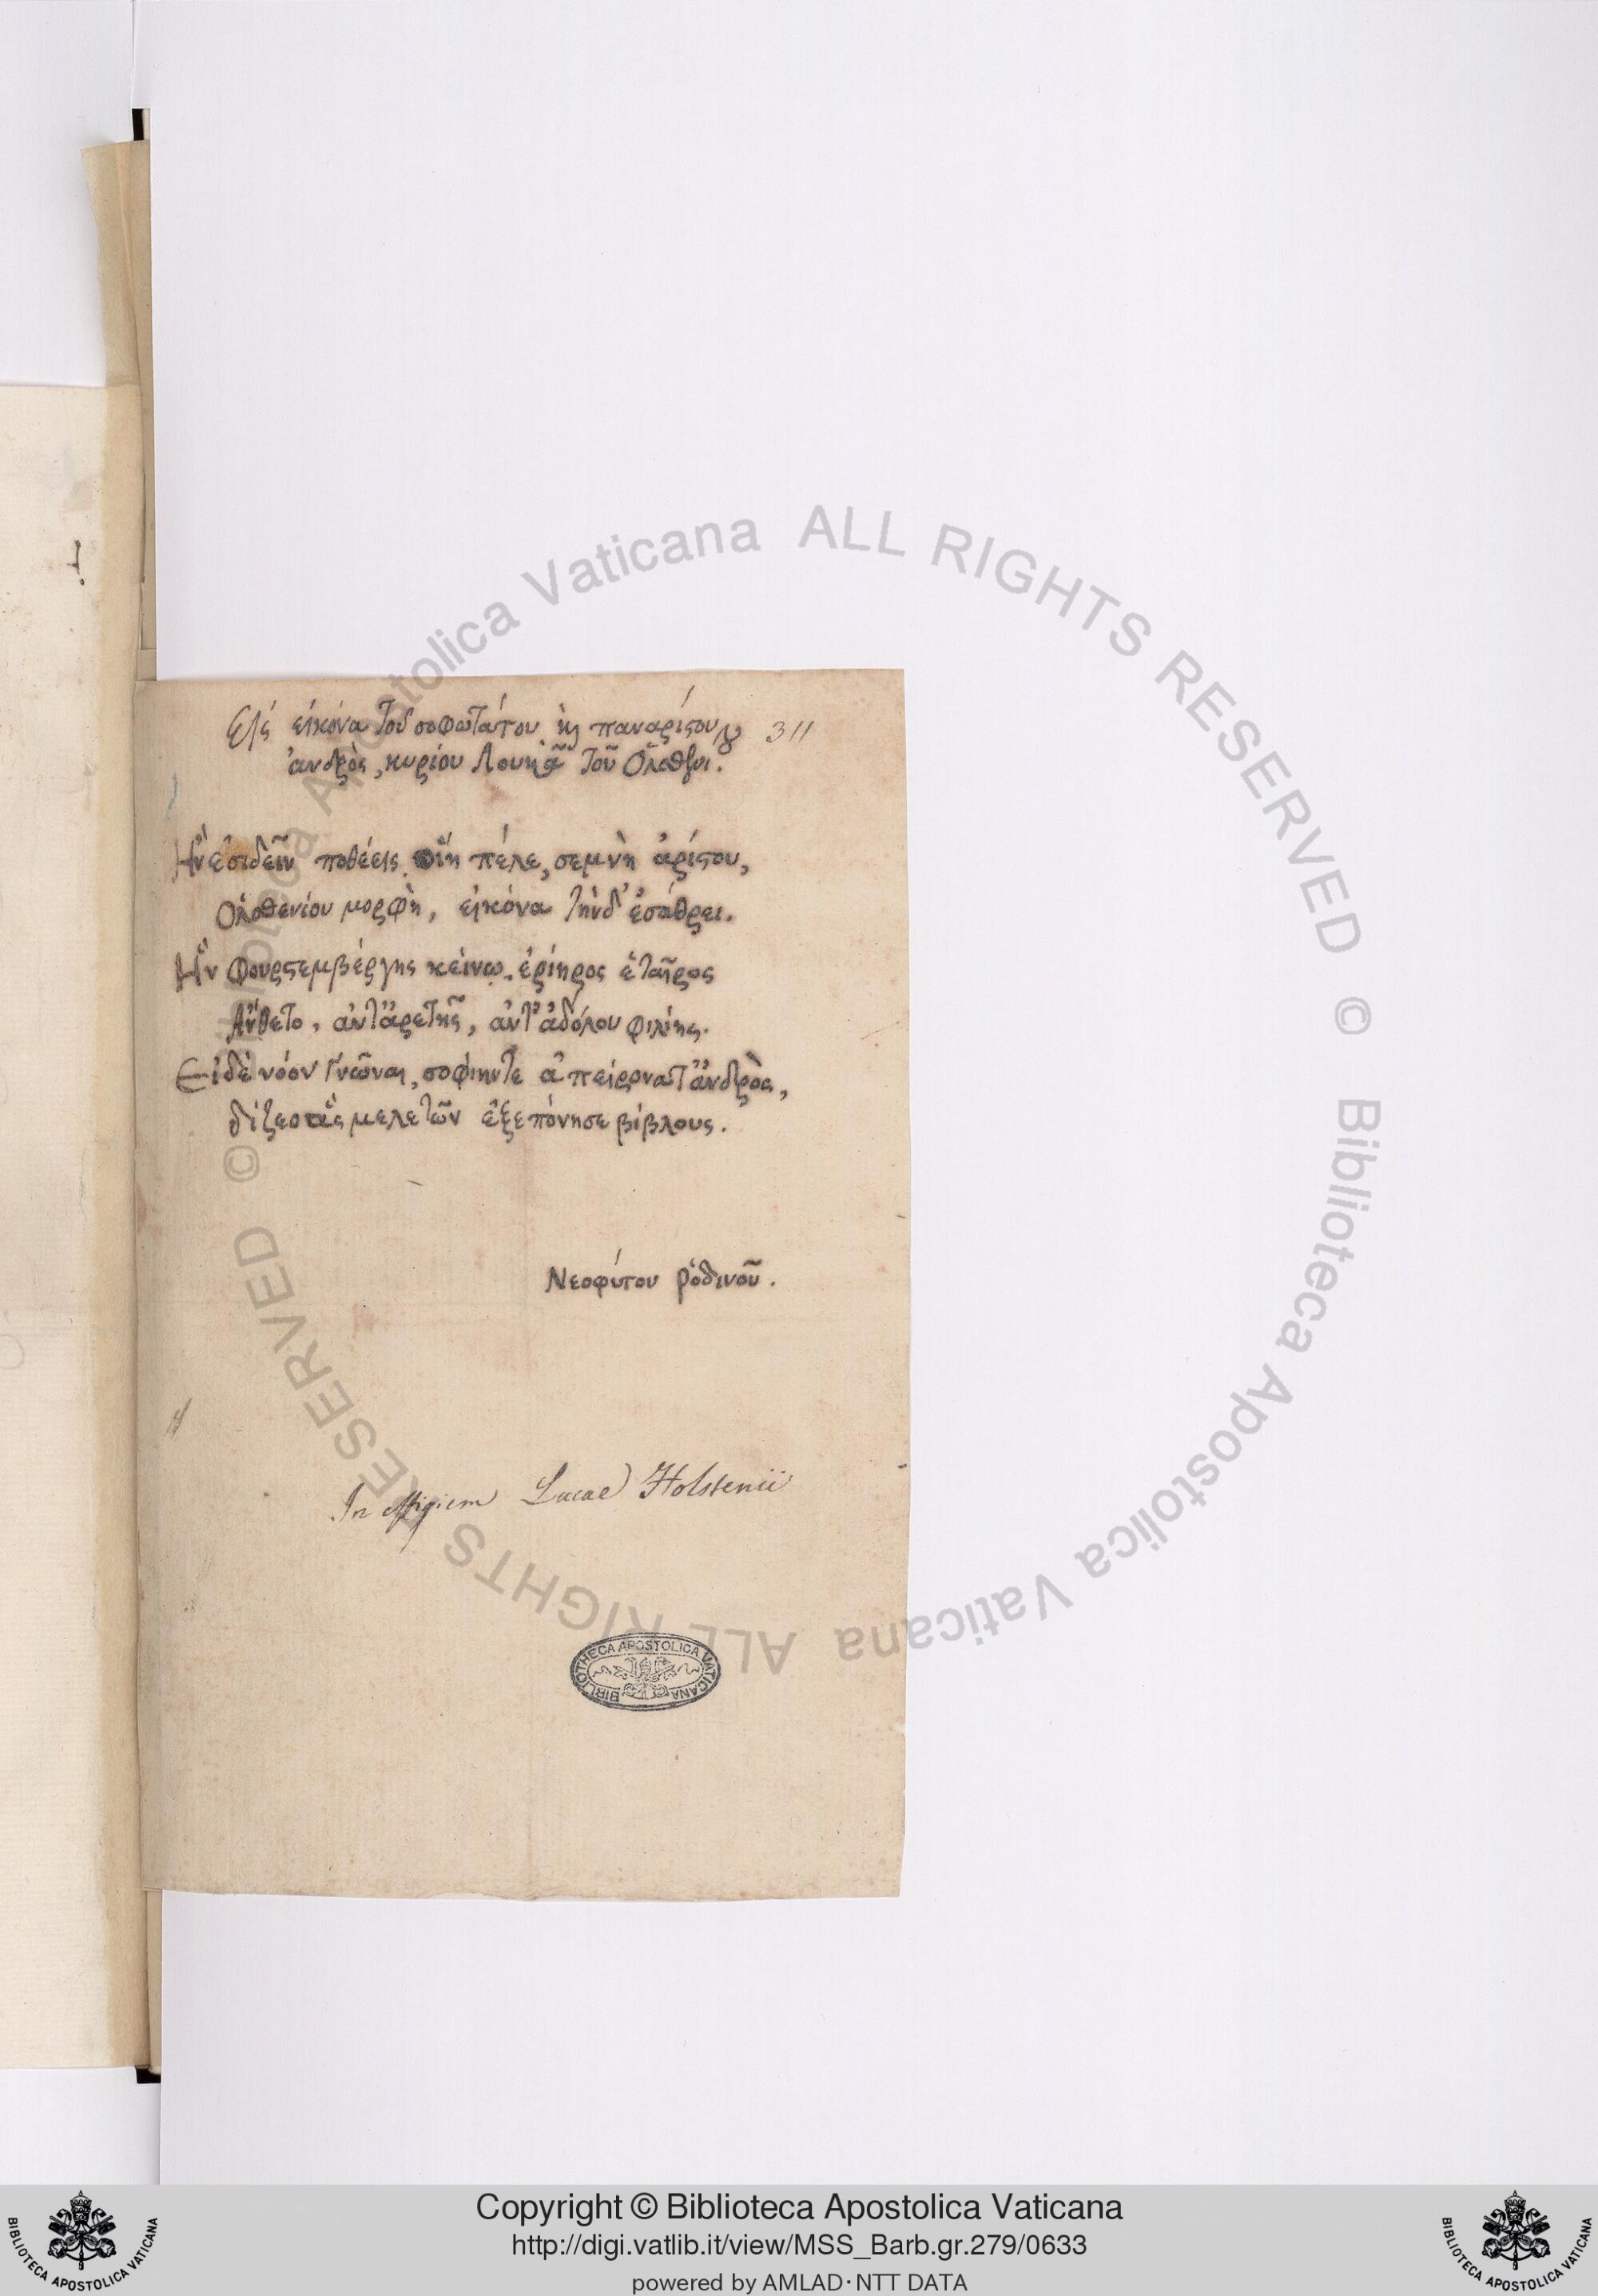 Εἰς εἰκόνα τοῦ σοφωτάτου ϗ παναρίστου
311
ἀνδρὸς, κυρίου Λουκᾶ τοῦ
Ἢν ἐσιδεῖν ποθέεις οἵη πέλε, σεμνὴ ἀρίστου,
μορφὴ, εἰκόνα τήνδ' ἐσάθρει.
Ἣν Φουρστεμβέργης κείνῳ ἐρίηρος ἑταῖρος
Ἄνθετο, ἀντ' ἀρετῆς, ἀντ' ἀδόλου φιλίης.
Εἰ δὲ νόον γνῶναι, σοφίην τε ἀπείρονα τ' ἀνδρὸς,
δίζεο τὰς μελετῶν ἐξεπόνησε βίβλους.
Νεοφύτου ῥοδινοῦ.
In effigiem Lucae Holstenii
BIBLIOTHECA APOSTOLICA VATICANA
© Biblioteca Apostolica Vaticana ALL RIGHTS RESERVED © Biblioteca Apostolica Vaticana ALL RIGHTS RESERVED
Copyright © Biblioteca Apostolica Vaticana
http://digi.vatlib.it/view/MSS_Barb.gr.279/0633
powered by AMLAD·NTT DATA
BIBLIOTECA APOSTOLICA VATICANA
BIBLIOTECA APOSTOLICA VATICANA